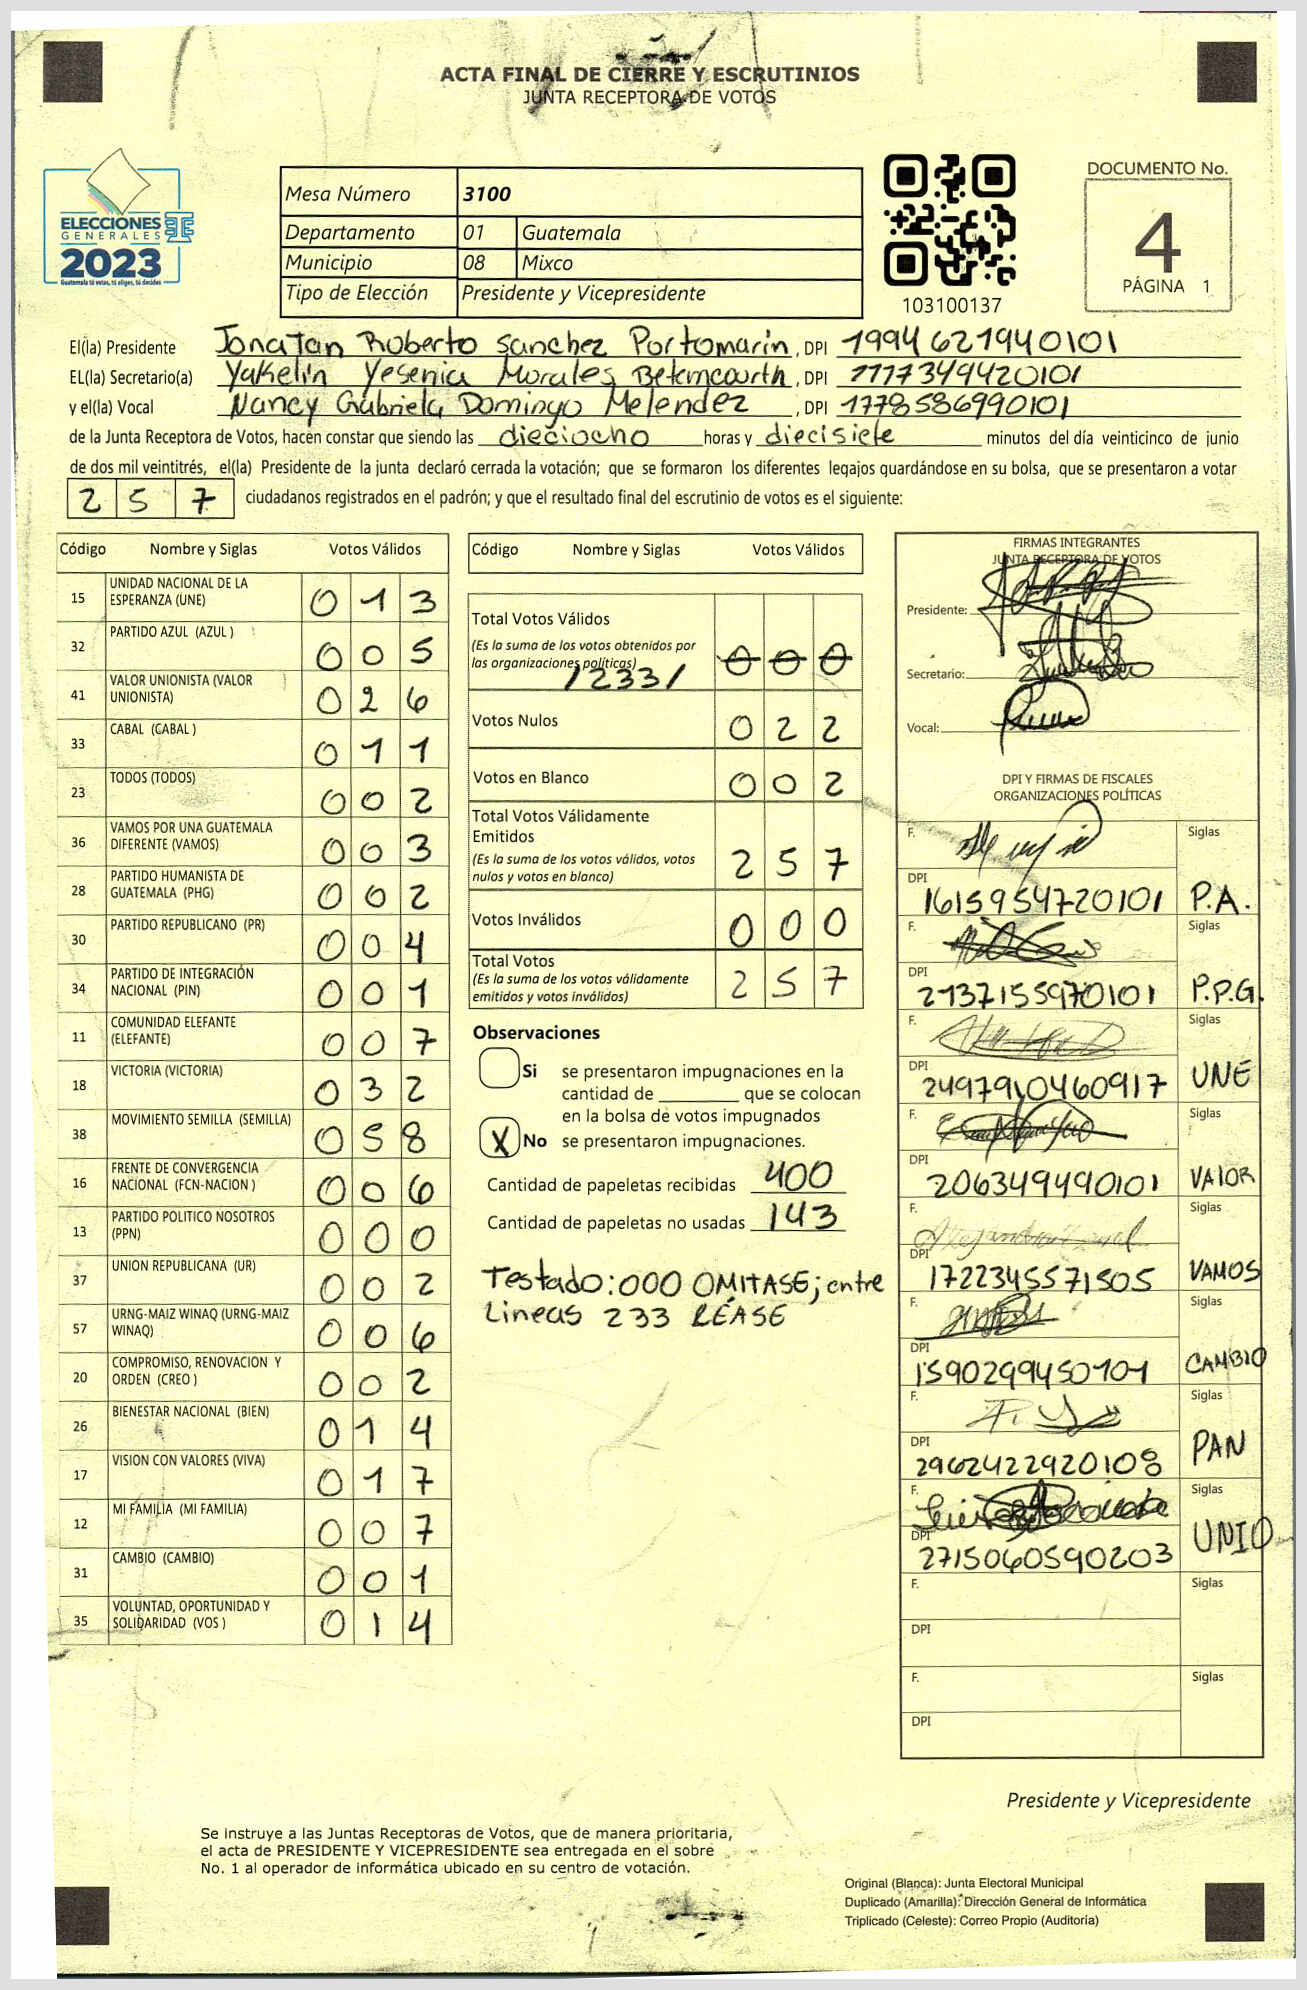 ACTA FINAL DE CIERRE Y ESCRUTINIOS
JUNTA RECEPTORA DE VOTOS
ELECCIONES
GENERALES
2023
Guatemala tú votas, tú eliges, tú decides
Mesa Número 3100
Departamento 01 Guatemala
Municipio 08 Mixco
Tipo de Elección Presidente y Vicepresidente
103100137
DOCUMENTO No.
4
PÁGINA 1
El(la) Presidente Jonatan Roberto Sanchez Portomarin, DPI 1994621940101
EL(la) Secretario(a) Yakelin Yesenia Morales Betancourth, DPI 2777349420101
y el(la) Vocal Nancy Gabriela Domingo Melendez, DPI 1778586990101
de la Junta Receptora de Votos, hacen constar que siendo las dieciocho horas y diecisiete minutos del día veinticinco de junio
de dos mil veintitrés, el(la) Presidente de la junta declaró cerrada la votación; que se formaron los diferentes legajos guardándose en su bolsa, que se presentaron a votar
257 ciudadanos registrados en el padrón; y que el resultado final del escrutinio de votos es el siguiente:
Código Nombre y Siglas Votos Válidos
15 UNIDAD NACIONAL DE LA ESPERANZA (UNE) 013
32 PARTIDO AZUL (AZUL ) 005
41 VALOR UNIONISTA (VALOR UNIONISTA) 026
33 CABAL (CABAL ) 011
23 TODOS (TODOS) 002
36 VAMOS POR UNA GUATEMALA DIFERENTE (VAMOS) 003
28 PARTIDO HUMANISTA DE GUATEMALA (PHG) 002
30 PARTIDO REPUBLICANO (PR) 004
34 PARTIDO DE INTEGRACIÓN NACIONAL (PIN) 001
11 COMUNIDAD ELEFANTE (ELEFANTE) 007
18 VICTORIA (VICTORIA) 032
38 MOVIMIENTO SEMILLA (SEMILLA) 058
16 FRENTE DE CONVERGENCIA NACIONAL (FCN-NACION ) 006
13 PARTIDO POLITICO NOSOTROS (PPN) 000
37 UNION REPUBLICANA (UR) 002
57 URNG-MAIZ WINAQ (URNG-MAIZ WINAQ) 006
20 COMPROMISO, RENOVACION Y ORDEN (CREO ) 002
26 BIENESTAR NACIONAL (BIEN) 014
17 VISION CON VALORES (VIVA) 017
12 MI FAMILIA (MI FAMILIA) 007
31 CAMBIO (CAMBIO) 001
35 VOLUNTAD, OPORTUNIDAD Y SOLIDARIDAD (VOS ) 014
Código Nombre y Siglas Votos Válidos
Total Votos Válidos
(Es la suma de los votos obtenidos por
las organizaciones políticas) 000
/233/
Votos Nulos 022
Votos en Blanco 002
Total Votos Válidamente
Emitidos
(Es la suma de los votos válidos, votos
nulos y votos en blanco) 257
Votos Inválidos 000
Total Votos
(Es la suma de los votos válidamente
emitidos y votos inválidos) 257
Observaciones
Si se presentaron impugnaciones en la
cantidad de ________ que se colocan
en la bolsa de votos impugnados
X No se presentaron impugnaciones.
Cantidad de papeletas recibidas 400
Cantidad de papeletas no usadas 143
Testado: 000 OMITASE; entre
Lineas 233 LÉASE
FIRMAS INTEGRANTES
JUNTA RECEPTORA DE VOTOS
Presidente:
Secretario:
Vocal:
DPI Y FIRMAS DE FISCALES
ORGANIZACIONES POLÍTICAS
F. Siglas
DPI 1615954720101 P.A.
F. Siglas
DPI 2137155970101 P.P.G.
F. Siglas
DPI 2497910460917 UNE
F. Siglas
DPI 206349490101 VALOR
F. Siglas
DPI 1722345571505 VAMOS
F. Siglas
DPI 1590299450101 CAMBIO
F. Siglas
DPI 2962422920108 PAN
F. Siglas
DPI 2715060590203 UNIO
F. Siglas
DPI
F. Siglas
DPI
Presidente y Vicepresidente
Se instruye a las Juntas Receptoras de Votos, que de manera prioritaria,
el acta de PRESIDENTE Y VICEPRESIDENTE sea entregada en el sobre
No. 1 al operador de informática ubicado en su centro de votación.
Original (Blanca): Junta Electoral Municipal
Duplicado (Amarilla): Dirección General de Informática
Triplicado (Celeste): Correo Propio (Auditoría)